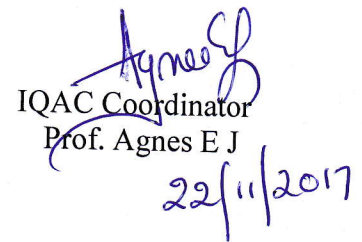 Agnes EJ
IQAC Coordinator
Prof. Agnes E J
22/11/2017